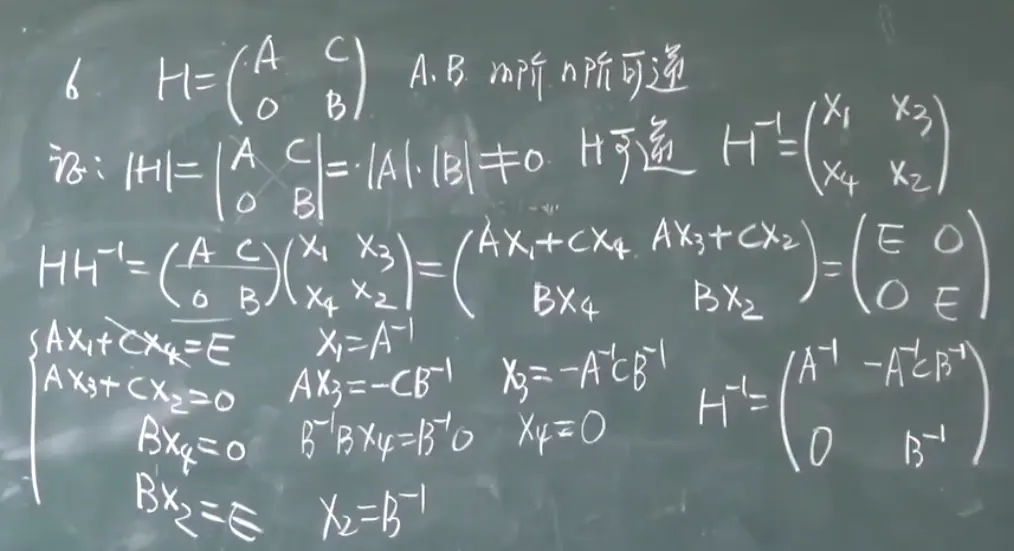 6 H=(A C
0 B) A.B. m阶 n阶可逆
证: |H|=|A C
0 B|=·|A|·|B|≠0. H可逆 H⁻¹=(X₁ X₃
X₄ X₂)
HH⁻¹=(A C
0 B)(X₁ X₃
X₄ X₂)=(AX₁+CX₄ AX₃+CX₂
BX₄ BX₂)=(E O
O E)
{AX₁+CX₄=E X₁=A⁻¹
AX₃+CX₂=0 AX₃=-CB⁻¹ X₃=-A⁻¹CB⁻¹
BX₄=0 B⁻¹BX₄=B⁻¹0 X₄=0
BX₂=E X₂=B⁻¹
H⁻¹=(A⁻¹ -A⁻¹CB⁻¹
0 B⁻¹)